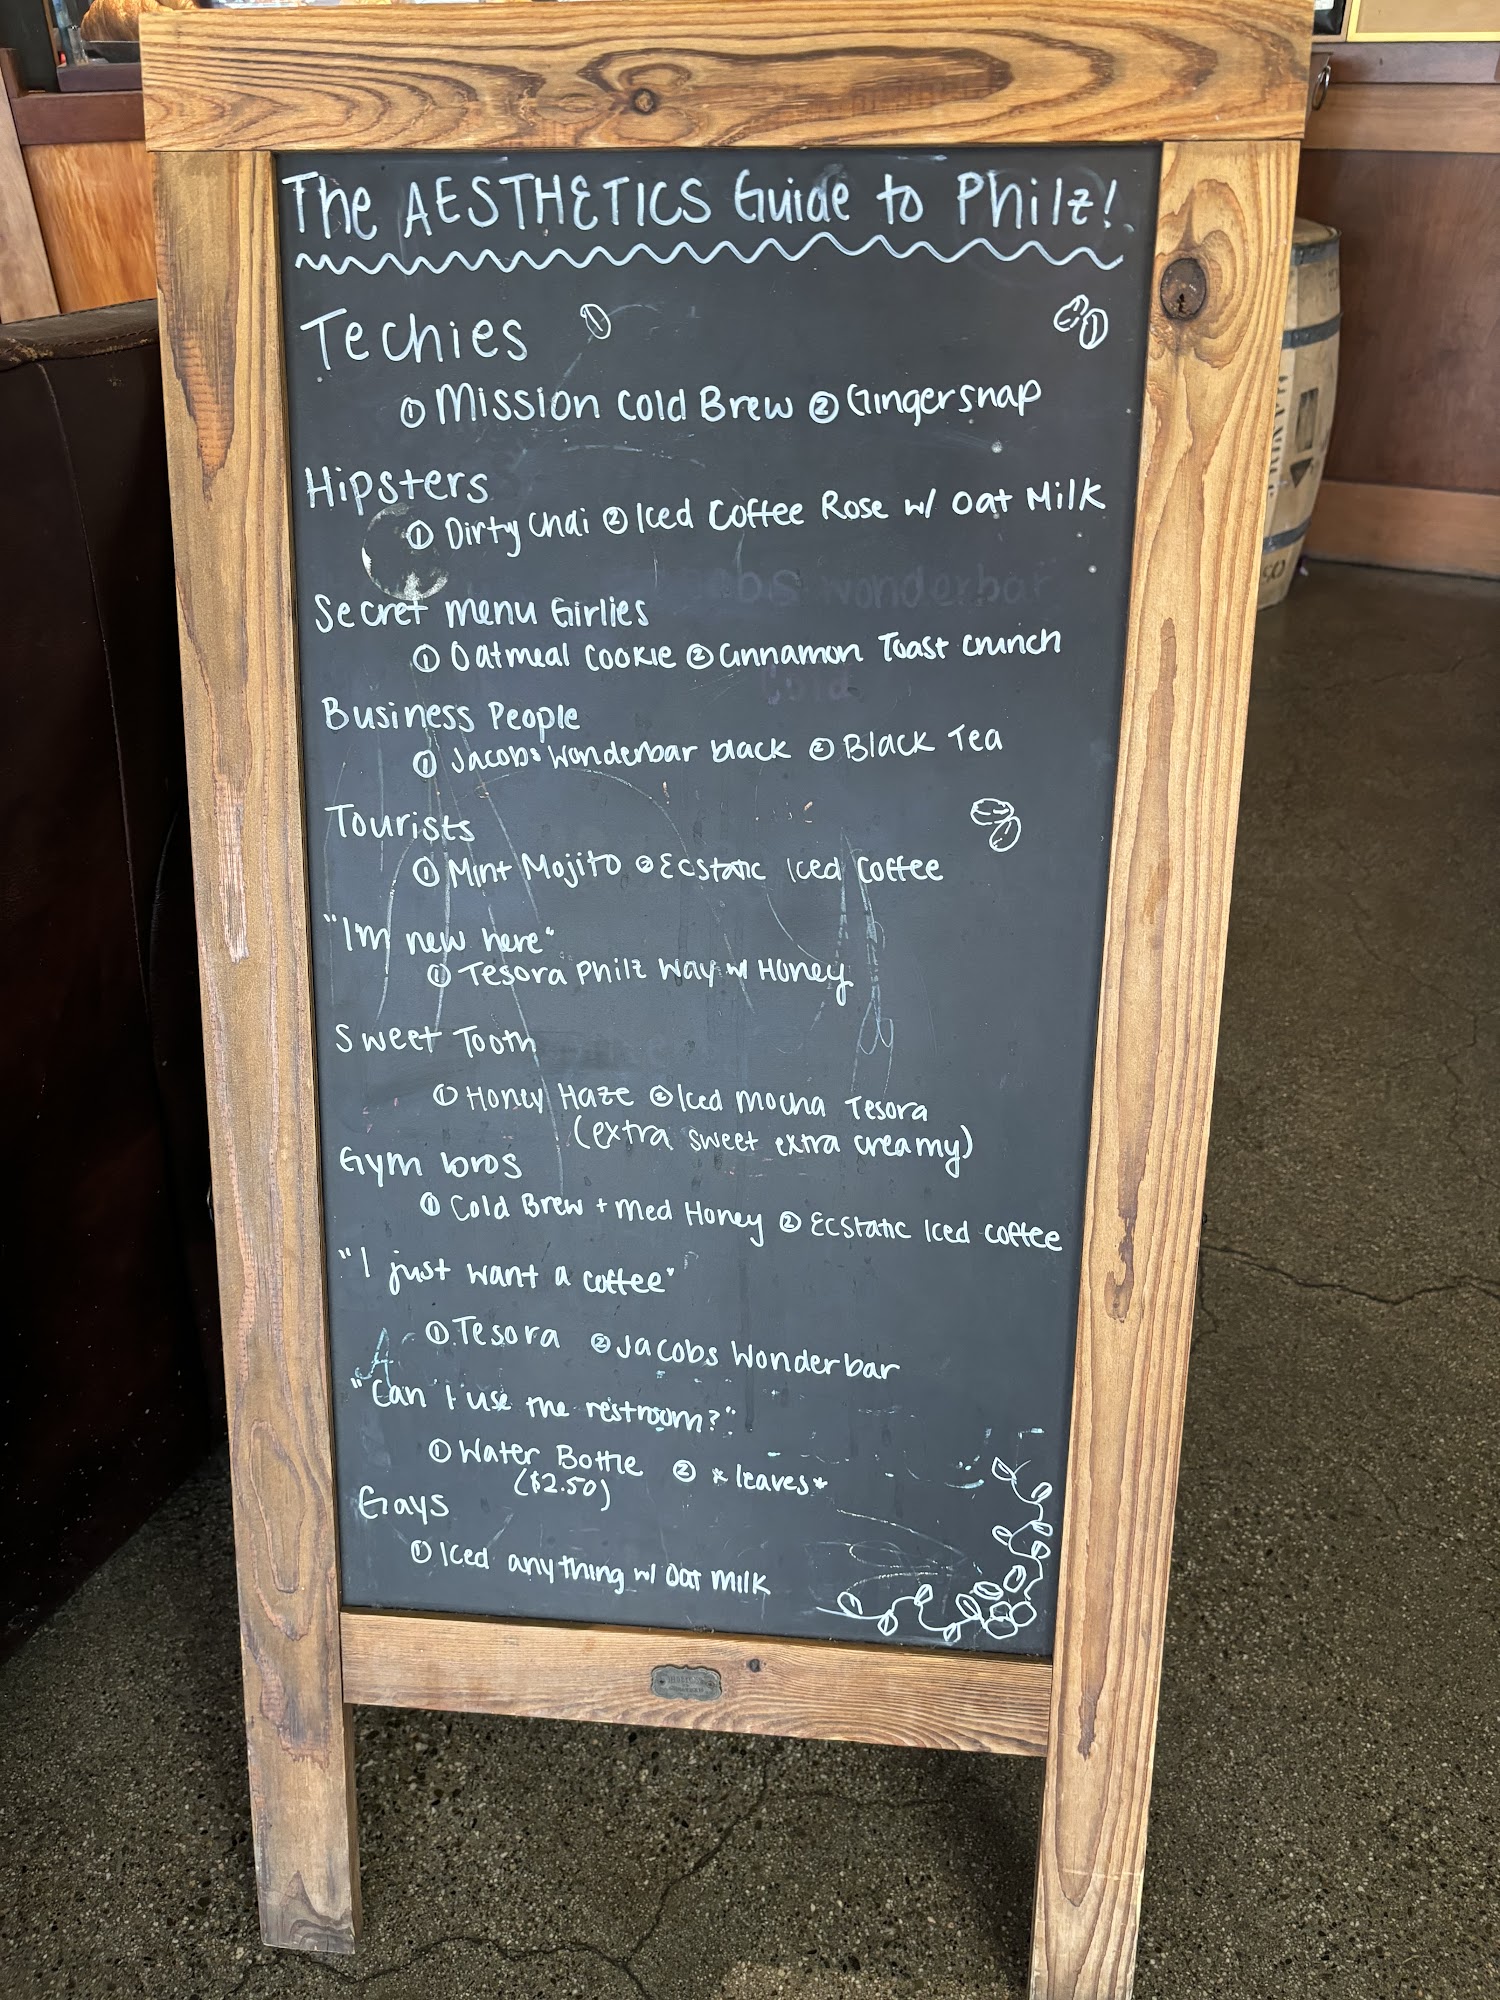 The AESTHETICS Guide to Philz!
Techies
① Mission Cold Brew ② Gingersnap
Hipsters
① Dirty Chai ② Iced Coffee Rose w/ Oat Milk
Secret Menu Girlies
① Oatmeal Cookie ② Cinnamon Toast Crunch
Business People
① Jacobs Wonderbar black ② Black Tea
Tourists
① Mint Mojito ② Ecstatic Iced Coffee
"I'm new here"
① Tesora Philz Way w/ Honey
Sweet Tooth
① Honey Haze ② Iced Mocha Tesora
(extra sweet extra creamy)
Gym bros
① Cold Brew + Med Honey ② Ecstatic Iced Coffee
"I just want a coffee"
① Tesora ② Jacobs Wonderbar
"Can I use the restroom?"
① Water Bottle ② *leaves*
($2.50)
Gays
① Iced anything w/ Oat Milk